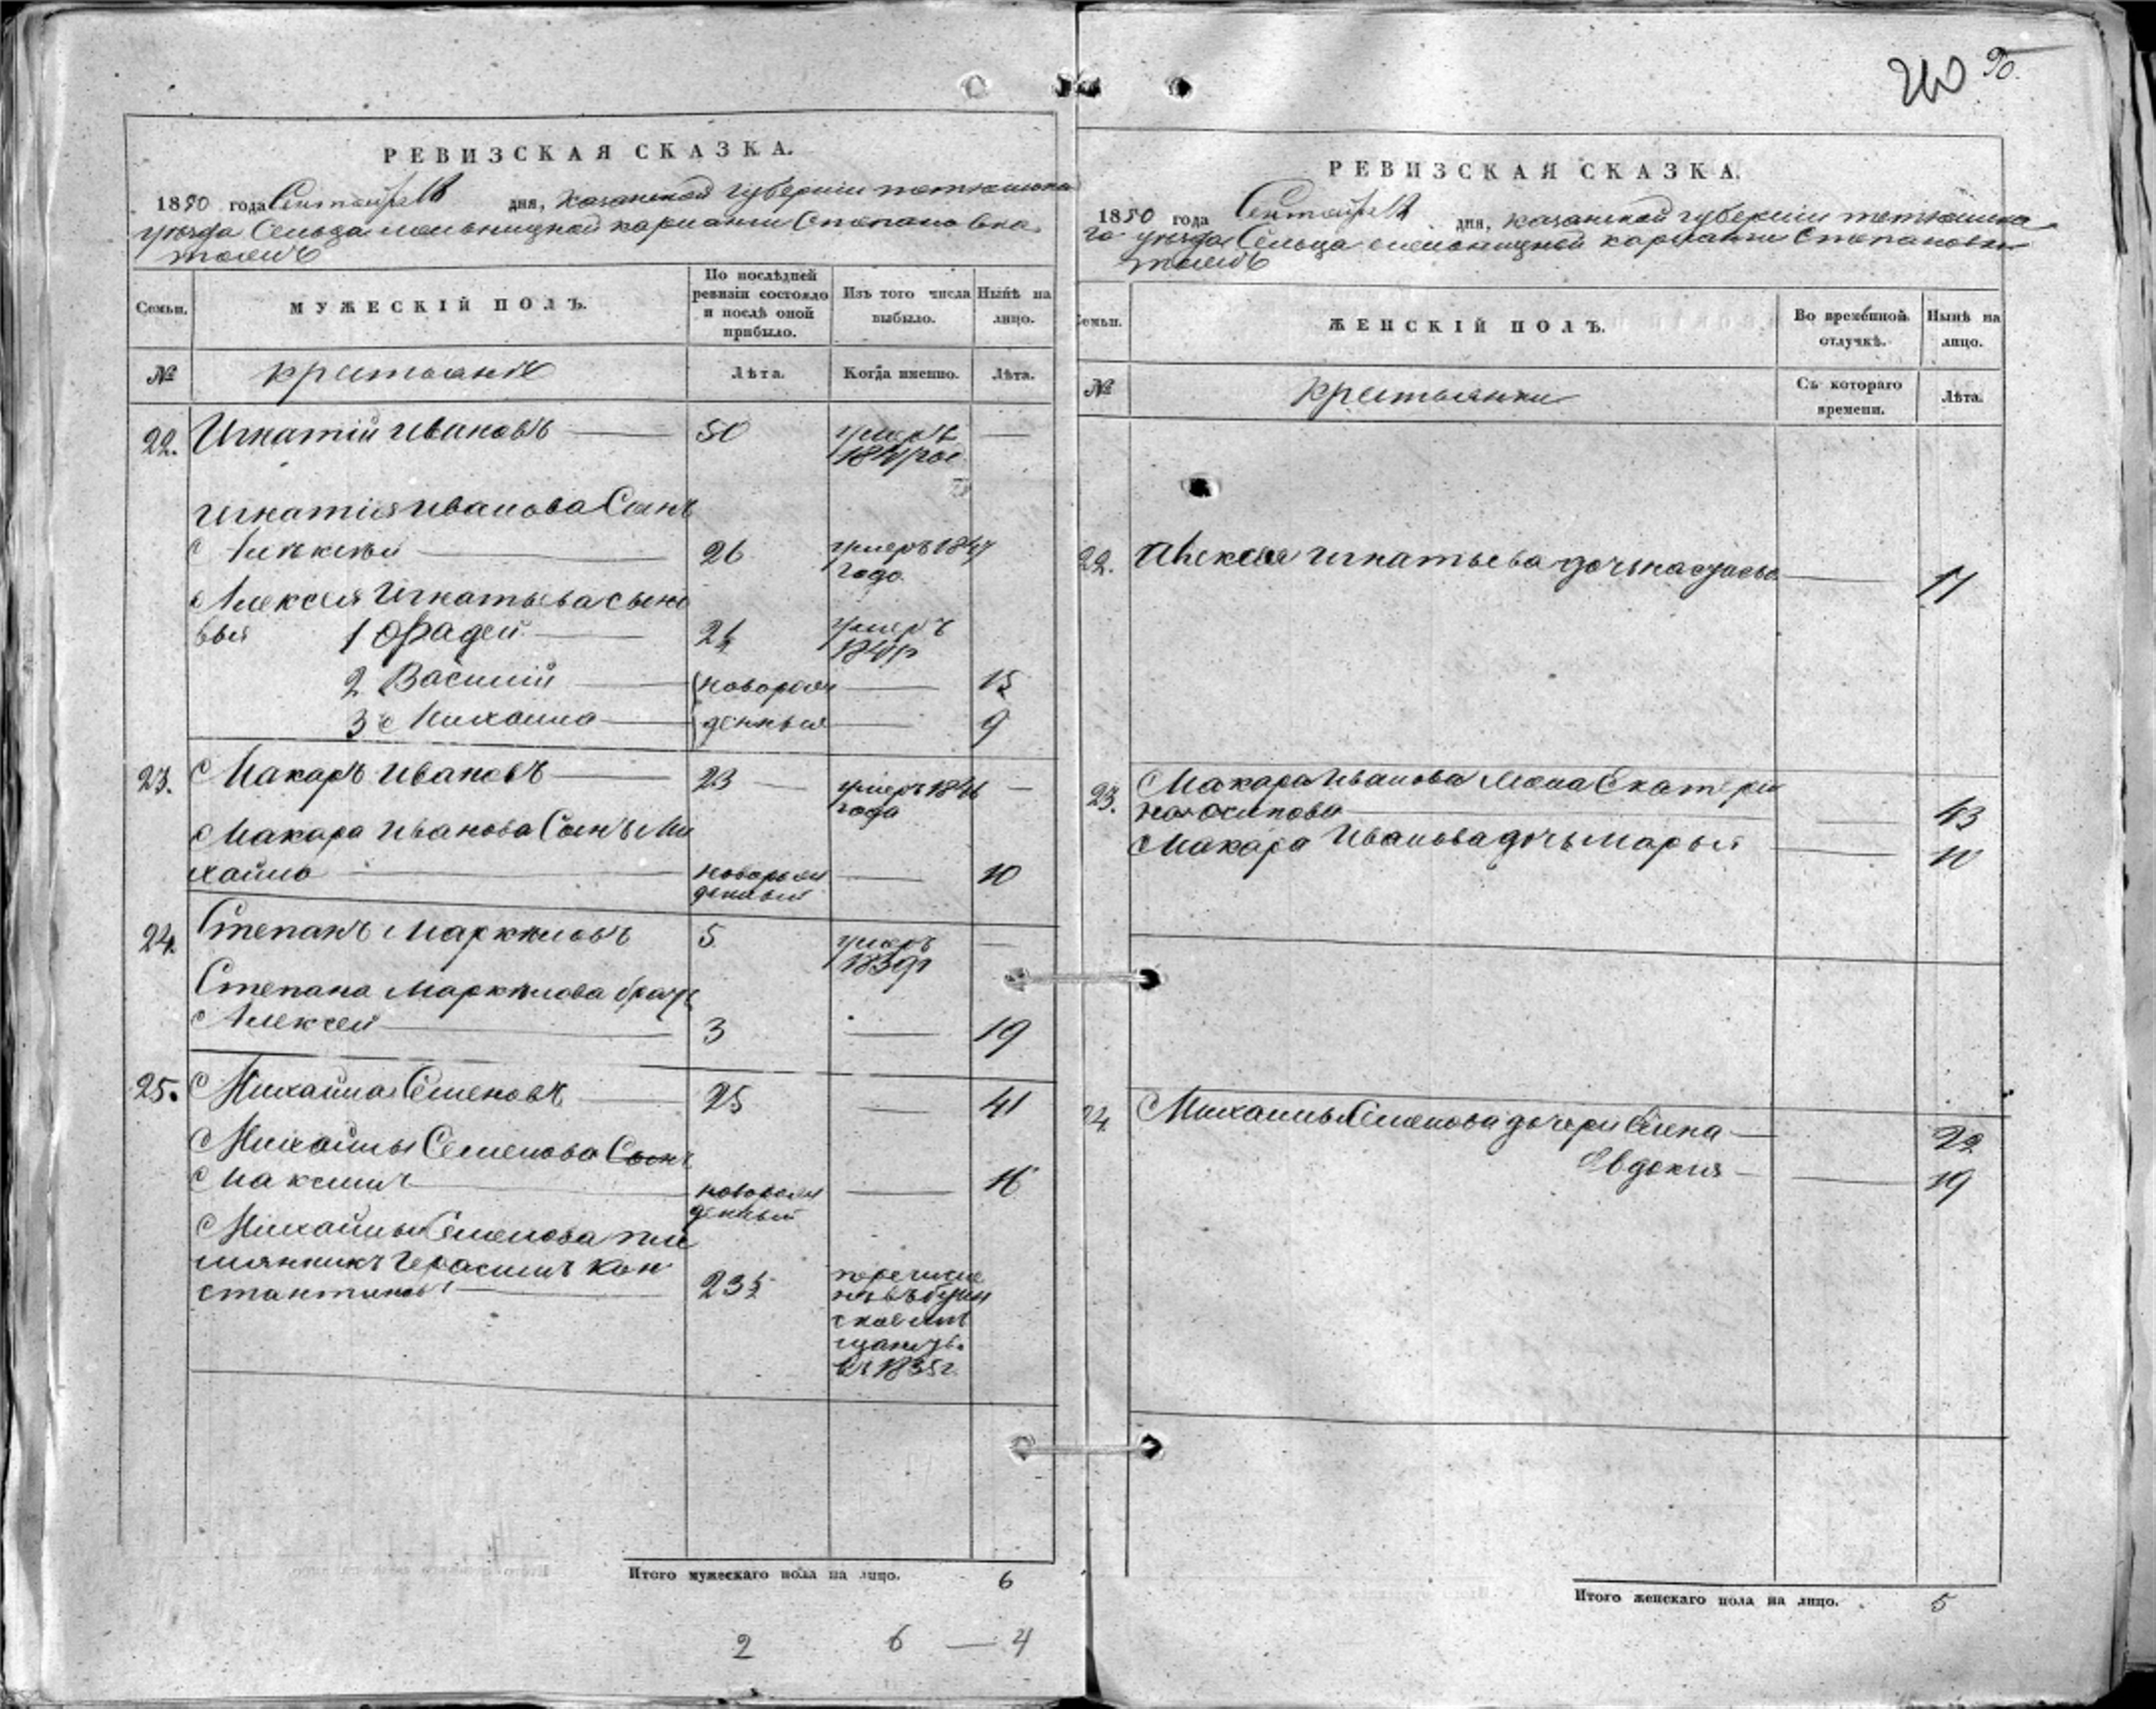 20 90.
РЕВИЗСКАЯ СКАЗКА.
1850 года Сентября дня, Казанской губернии тетюшска
уезда Сельца мельницкой кармалки Степановка
тожъ
Семьи. МУЖЕСКІЙ ПОЛЪ. По послѣдней ревизіи состояло и послѣ оной прибыло. Изъ того числа выбыло. Нынѣ на лицо.
№ крестьяне Лѣта. Когда именно. Лѣта.
22. Игнатій Ивановъ — 50 умеръ —
Игнатія Иванова Сынъ
Алексѣй — 26 умеръ 1847
года.
Алексея Игнатьева сыно
вья 1 Фадей — умеръ
2 Василий — новорож — 15
3 Михаила — денныя — 9
23. Макаръ Ивановъ — 23 — умеръ 1846 —
года
Макара Иванова Сынъ Ми
хайло — новорож — 10
денный
24. Степанъ Маркеловъ 5 умеръ —
1839г
Степана Маркелова братъ
Алексей — 3 — 19
25. Михайла Семеновъ — 25 — 41
Михайлы Семенова Сынъ
Максимъ — новорож — 16
денный
Михайлы Семенова пле
мянникъ Герасимъ Кон
стантиновъ — 23½ перечисле
нъ въ буин
ское мѣ
щанство
въ 1835г.
Итого мужескаго пола на лицо. 6
2 6 — 4
РЕВИЗСКАЯ СКАЗКА.
1850 года Сентября дня, Казанской губернии тетюшска
го уезда Сельца мельницкой кармалки Степановка
тожъ
Семьи. ЖЕНСКІЙ ПОЛЪ. Во временной отлучкѣ. Нынѣ на лицо.
№ крестьянки Съ котораго времени. Лѣта.
22. Алексея Игнатьева дочь — 17
23. Макара Иванова жена Екатери
на Осипова — 43
Макара Иванова дочь Марья — 10
24. Михайлы Семенова дочери Елена — 22
Евдокия — 19
Итого женскаго пола на лицо. 5